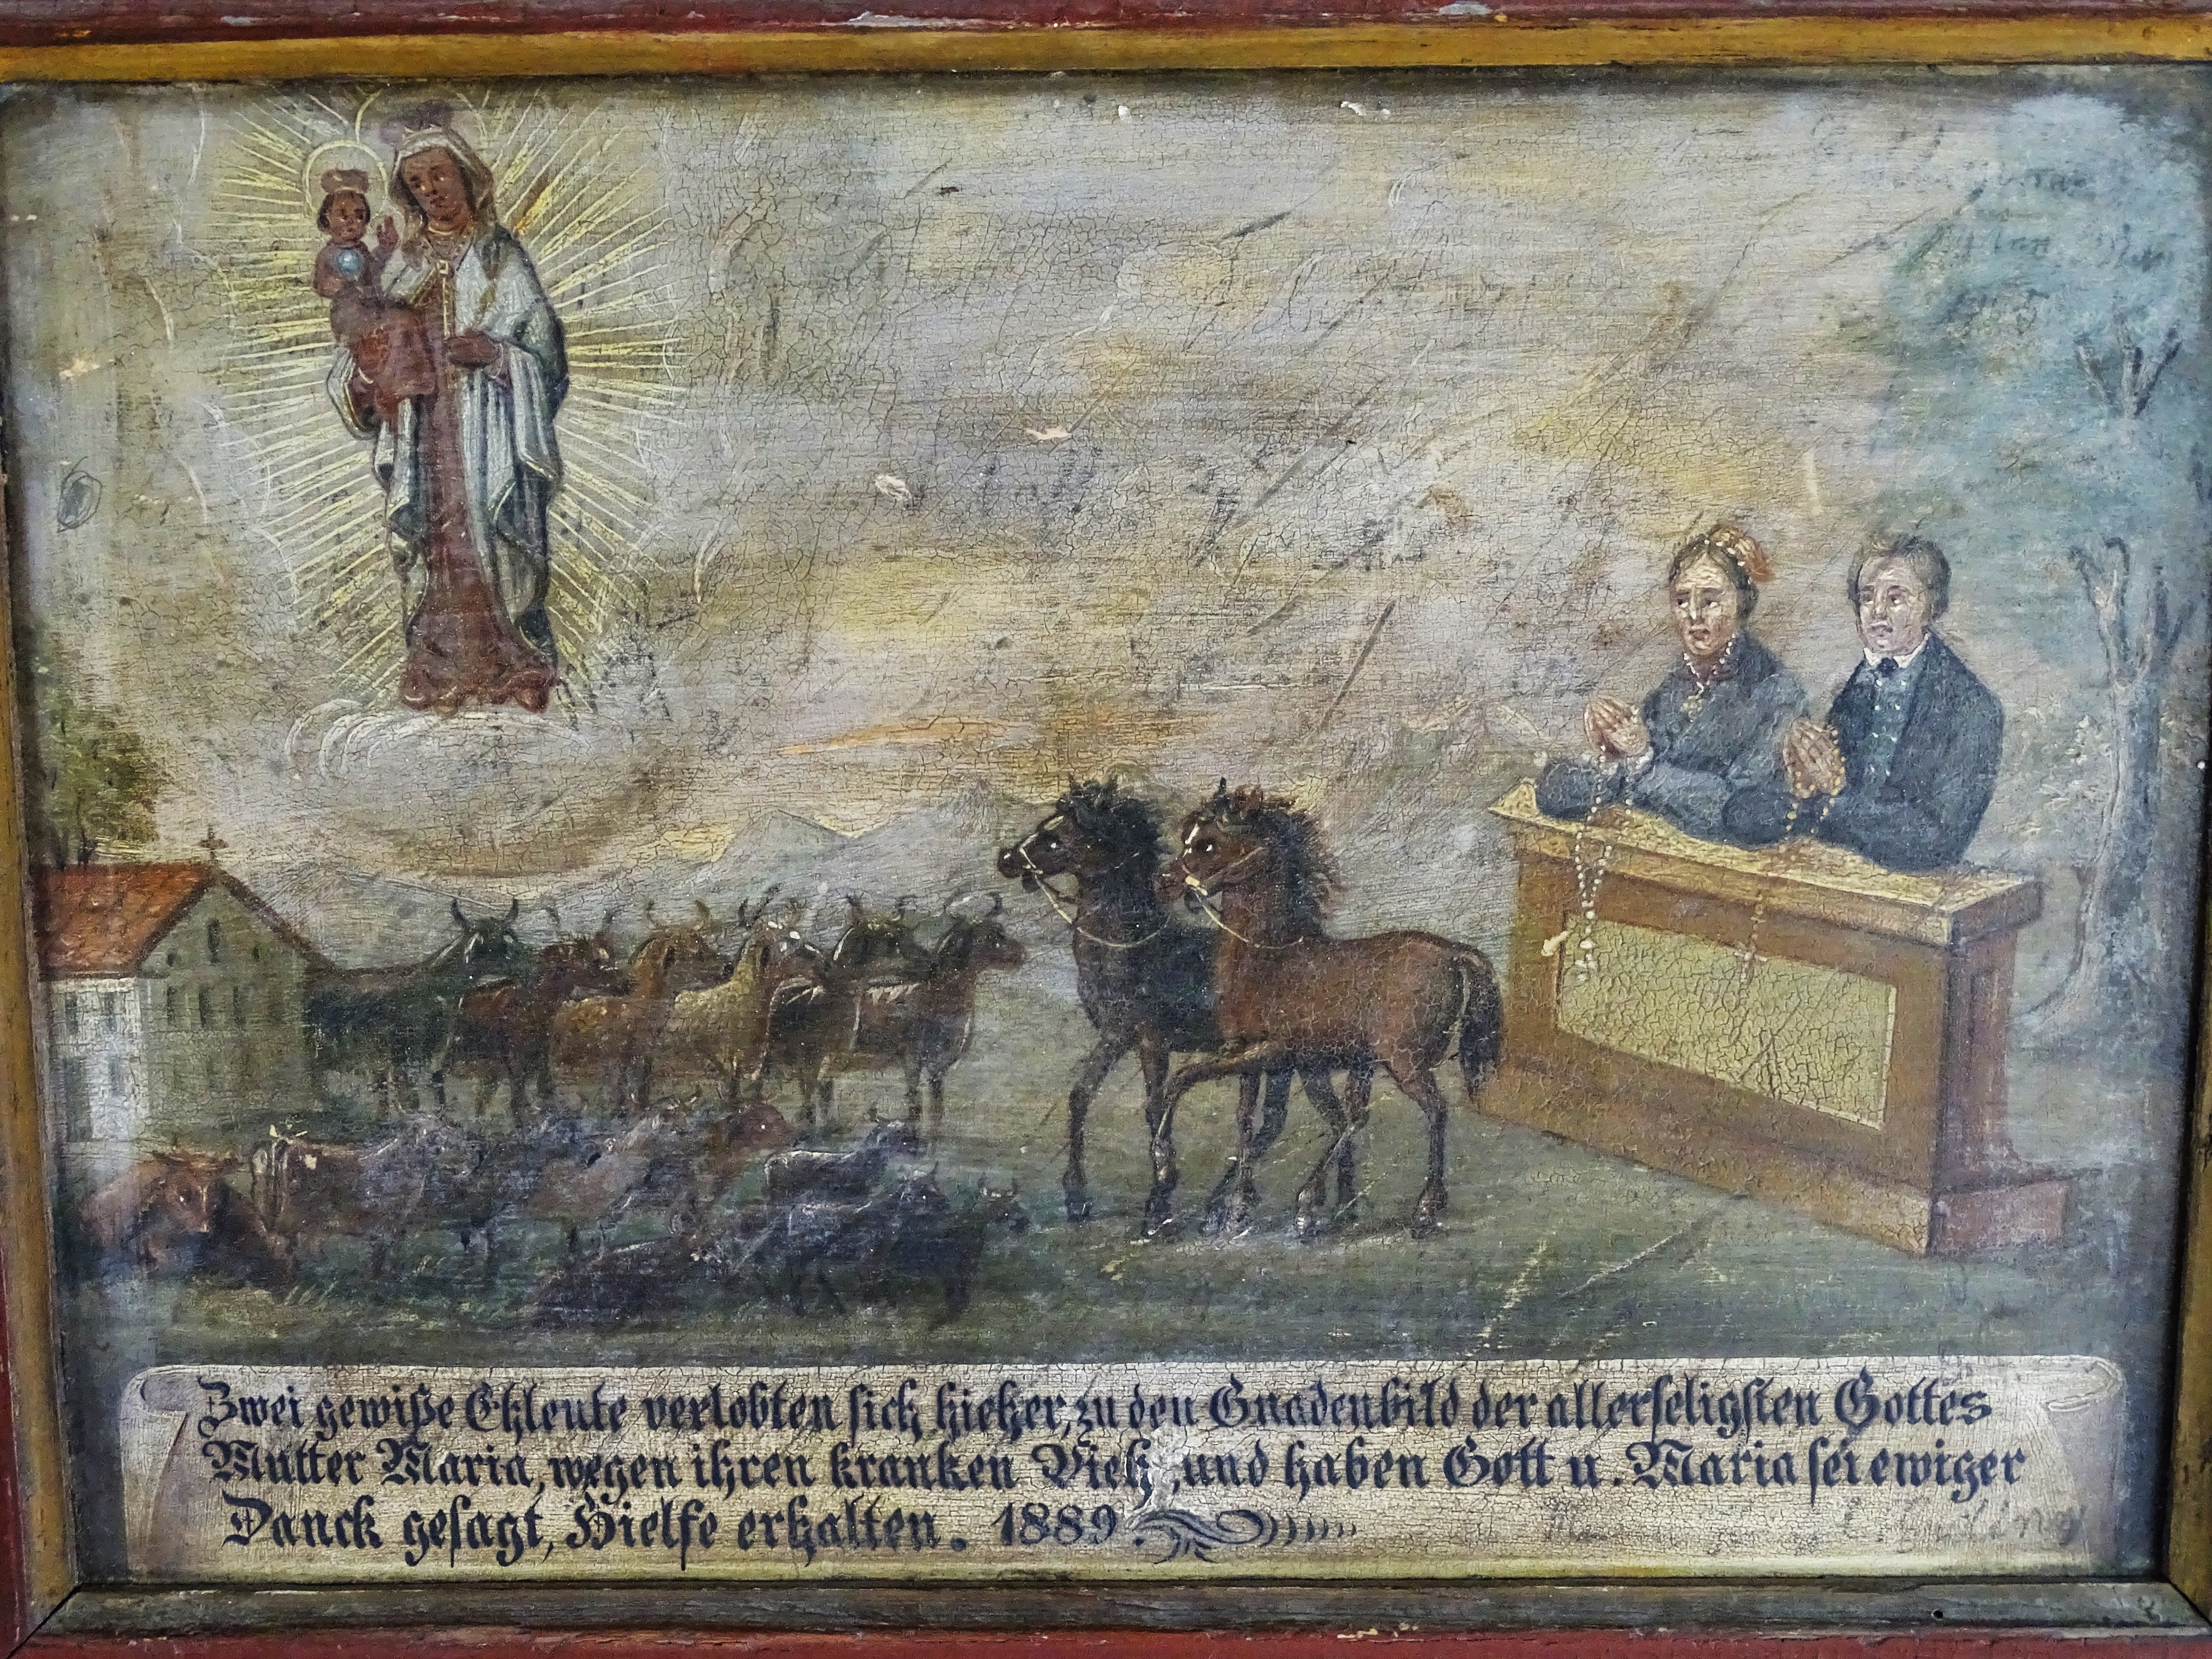 Zwei gewiße Ehleute verlobten sich hieher, zu den Gnadenbild der allerseligsten Gottes
Mutter Maria, wegen ihren kranken Vieh, und haben Gott u. Maria sei ewiger
Danck gesagt, Hielfe erhalten. 1889.